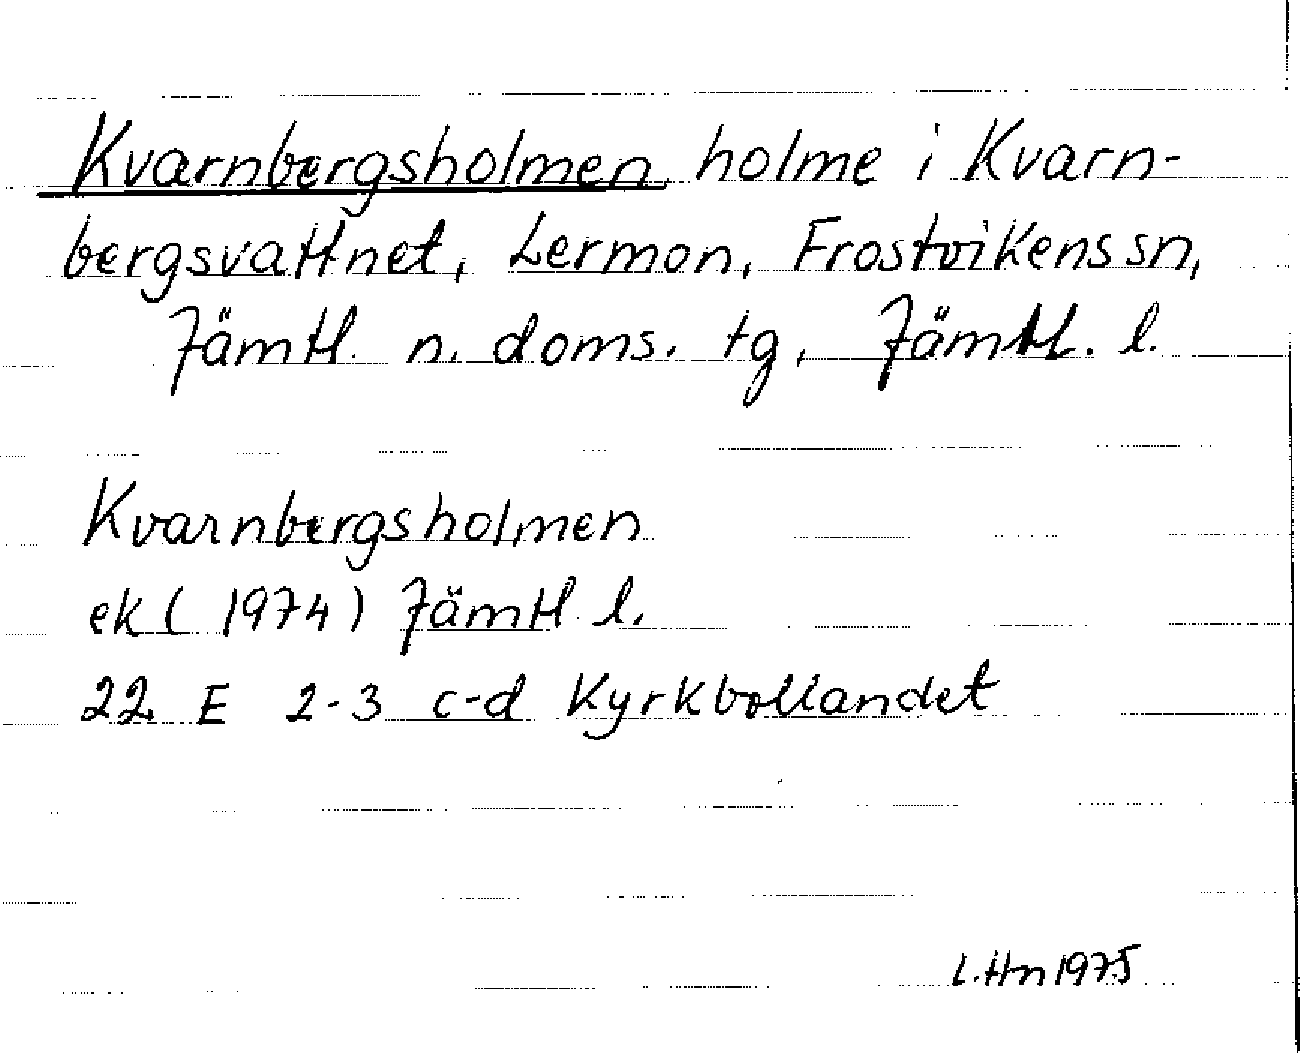 Kvarnbergsholmen holme i Kvarn-
bergsvattnet, Lermon, Frostvikens sn,
Jämtl. n. doms. tg, Jämtl. l.
Kvarnbergsholmen
ek (1974) Jämtl l.
22 E 2-3 c-d Kyrkbollandet
L.Hn 1975